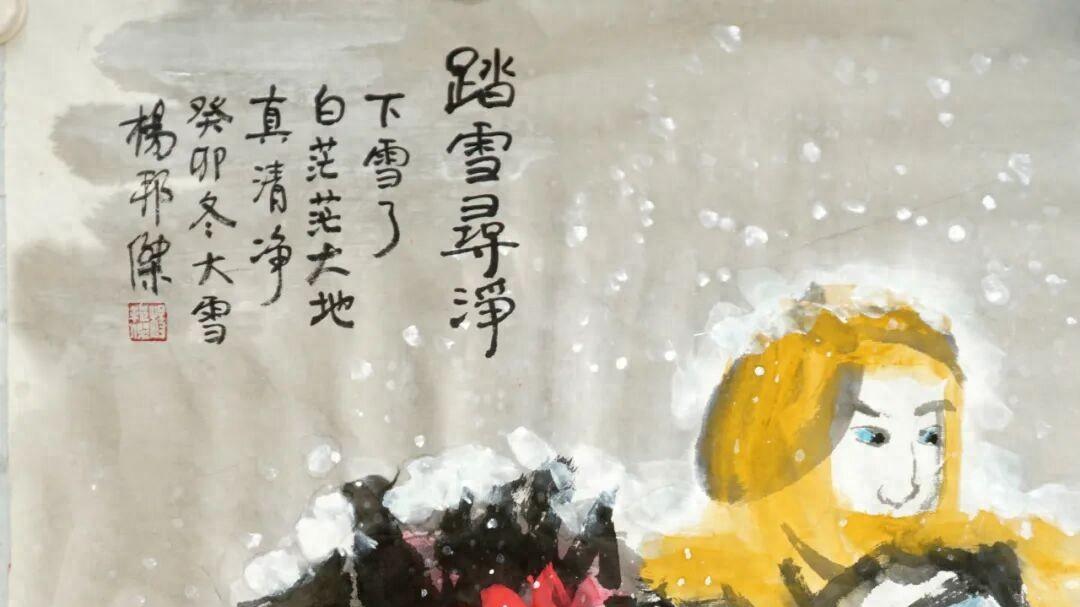 踏雪尋淨
下雪了
白茫茫大地
真清净
癸卯冬大雪
楊邦傑